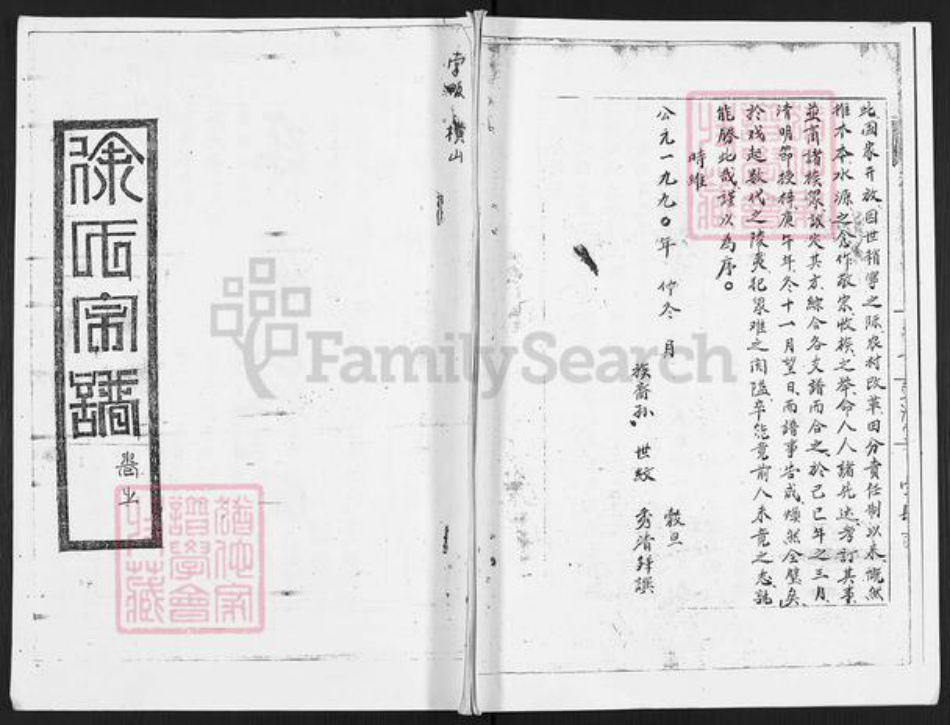 徐氏宗譜
卷之
橫山
此國家开放因世稍寧之际农村改革田分責任制以来慨然
推木本水源之念作敬宗收族之举命人人諸先达考訂其事
並商諸族眾誤灾其方綜合各支譜而合之於己巳年之三月
清明節授梓庚午年冬十一月望日而譜事告成燦然全璧矣
於戏起数代之陵夷犯眾难之闲隘卒能竟前人未竟之志孰
能勝此哉謹以為序。
時維
公元一九九〇年 仲冬月 穀旦
族裔孙 世紋 秀清 拜撰
FamilySearch